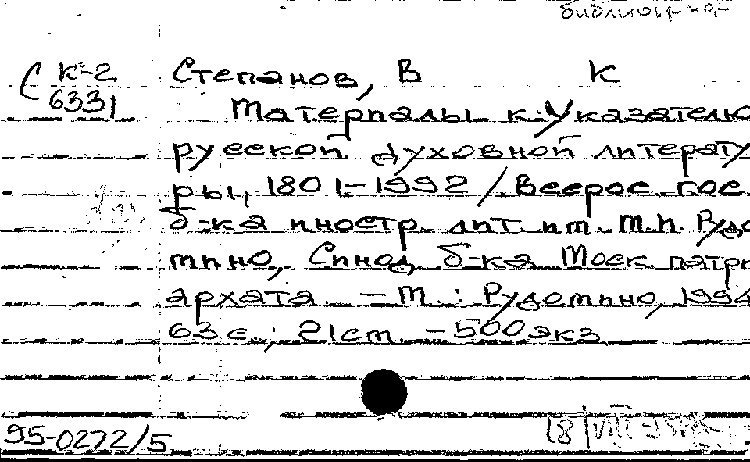 К-2 Степанов, В К
6331 Материалы к Указателю
русской духовной литерату
ры, 1801-1992 / Всерос. гос.
б-ка иностр. лит. им. М.И. Рудо
мино, Синод. б-ка Моск патри
архата – М.: Рудомино, 1994
63 с.; 21 cm. – 500 экз
95-0272/5 18 VIII